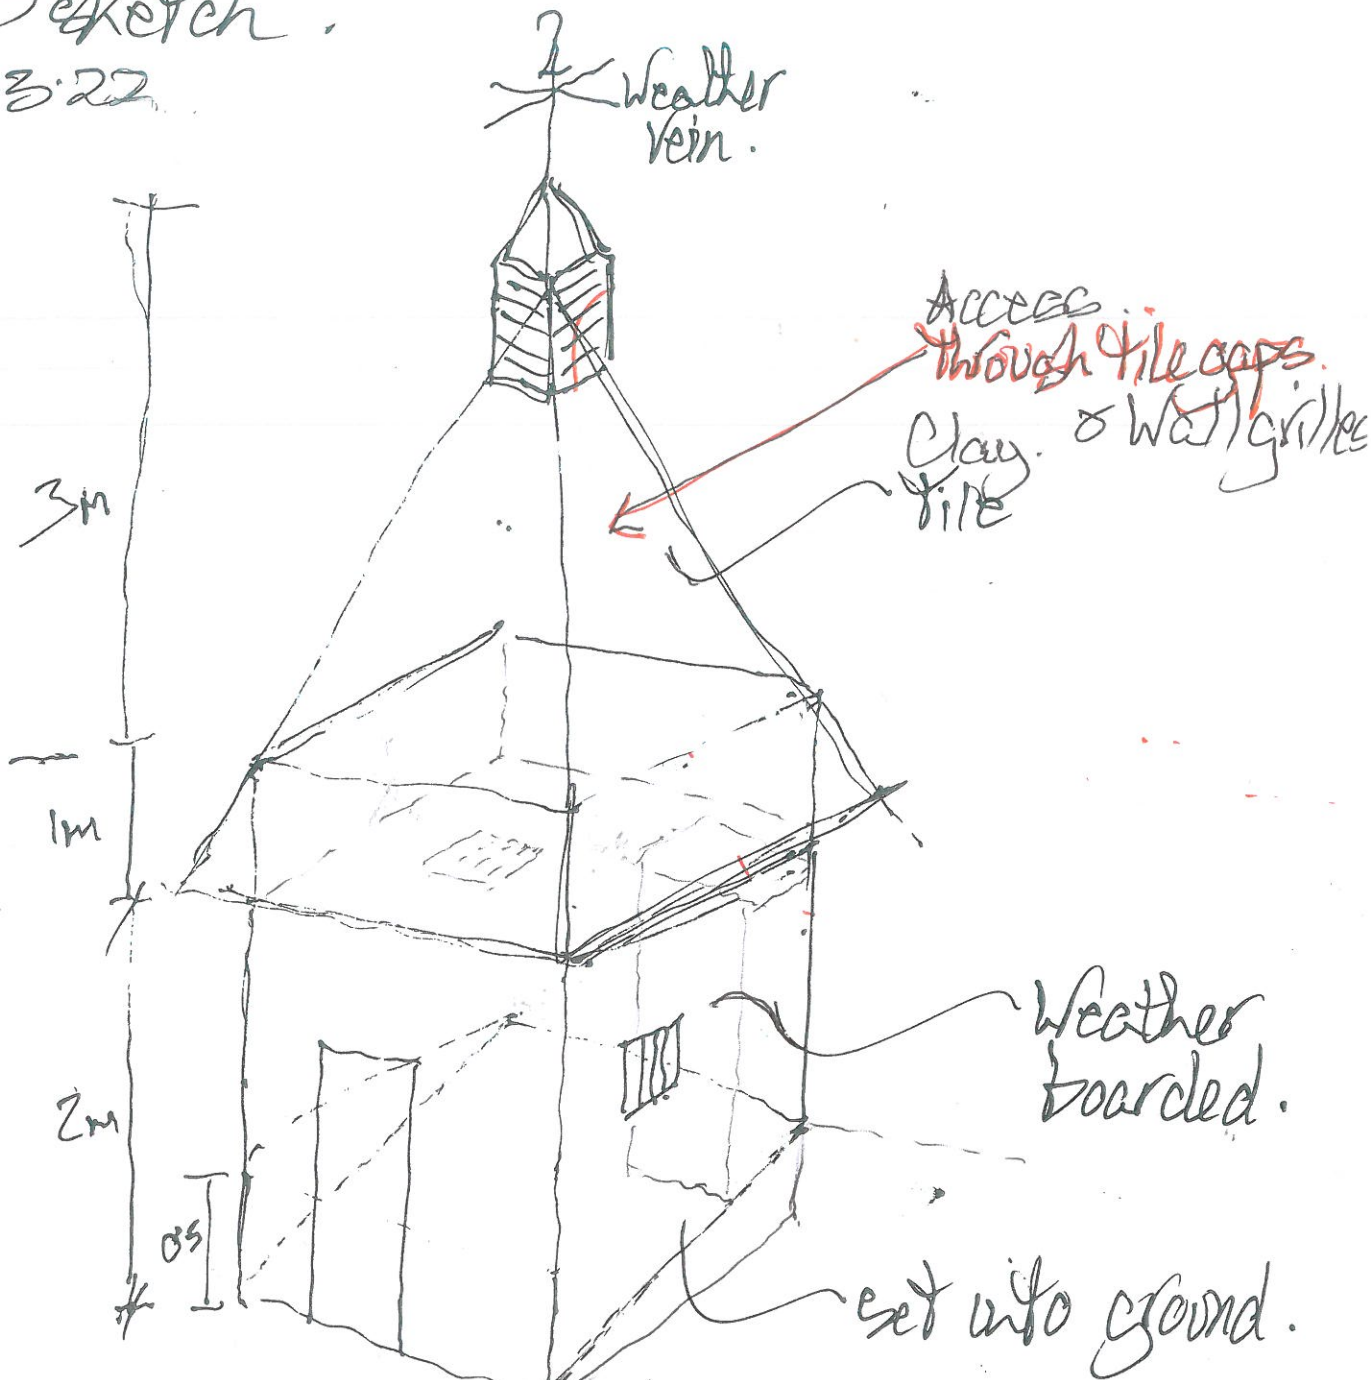 sketch.
3·22
Weather
Vein.
Access
through tile gaps.
& Wall grilles
Clay.
tile
3m
1m
2m
0.5
Weather
boarded.
set into ground.